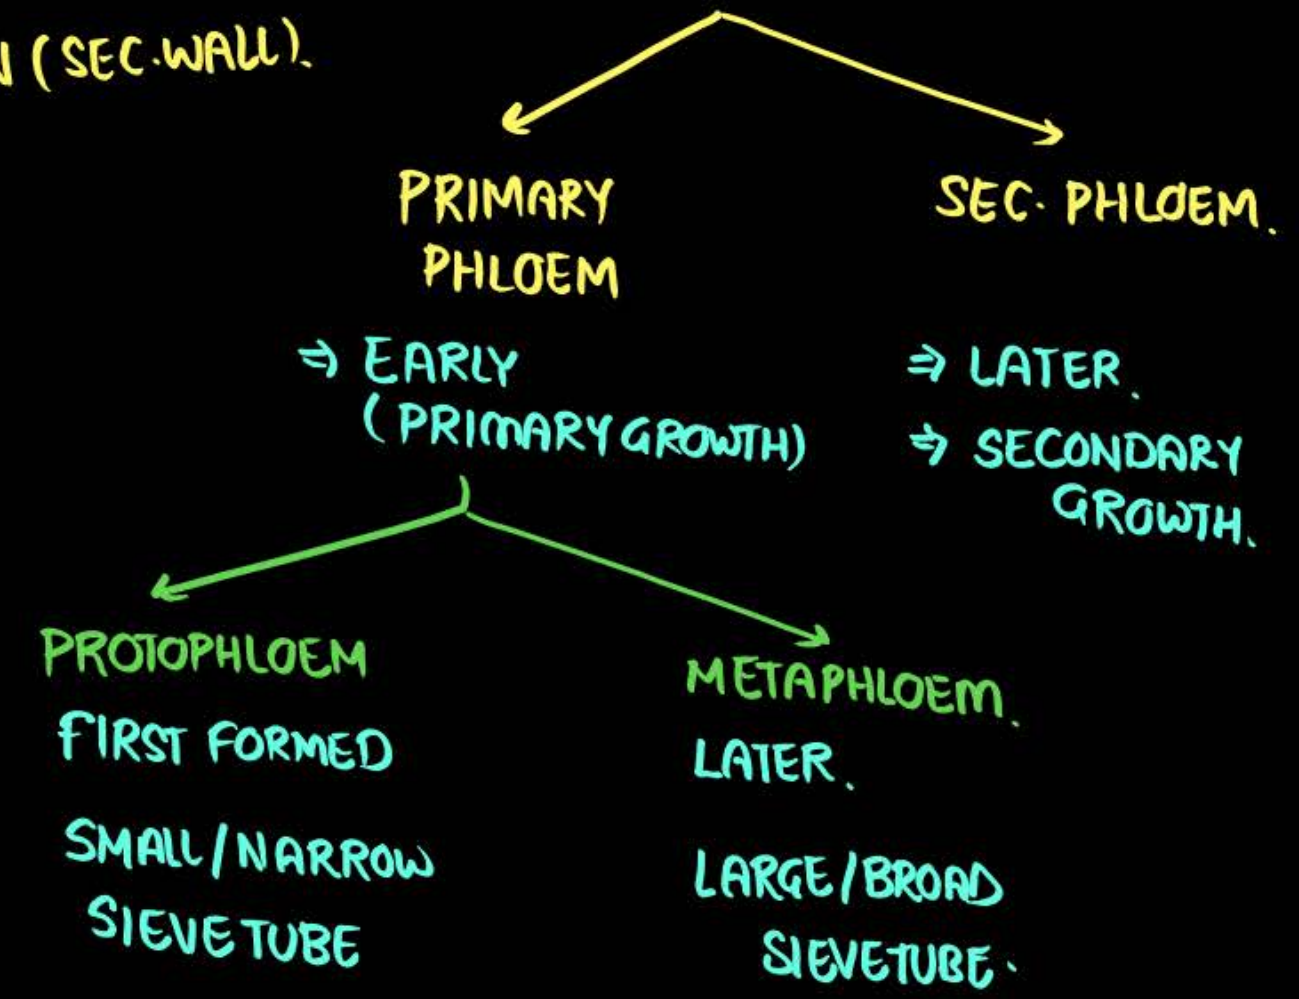 (SEC.WALL).
PRIMARY
PHLOEM
SEC. PHLOEM.
⇒ EARLY
(PRIMARY GROWTH)
⇒ LATER.
⇒ SECONDARY
GROWTH.
PROTOPHLOEM
FIRST FORMED
SMALL/NARROW
SIEVE TUBE
METAPHLOEM.
LATER.
LARGE/BROAD
SIEVETUBE.